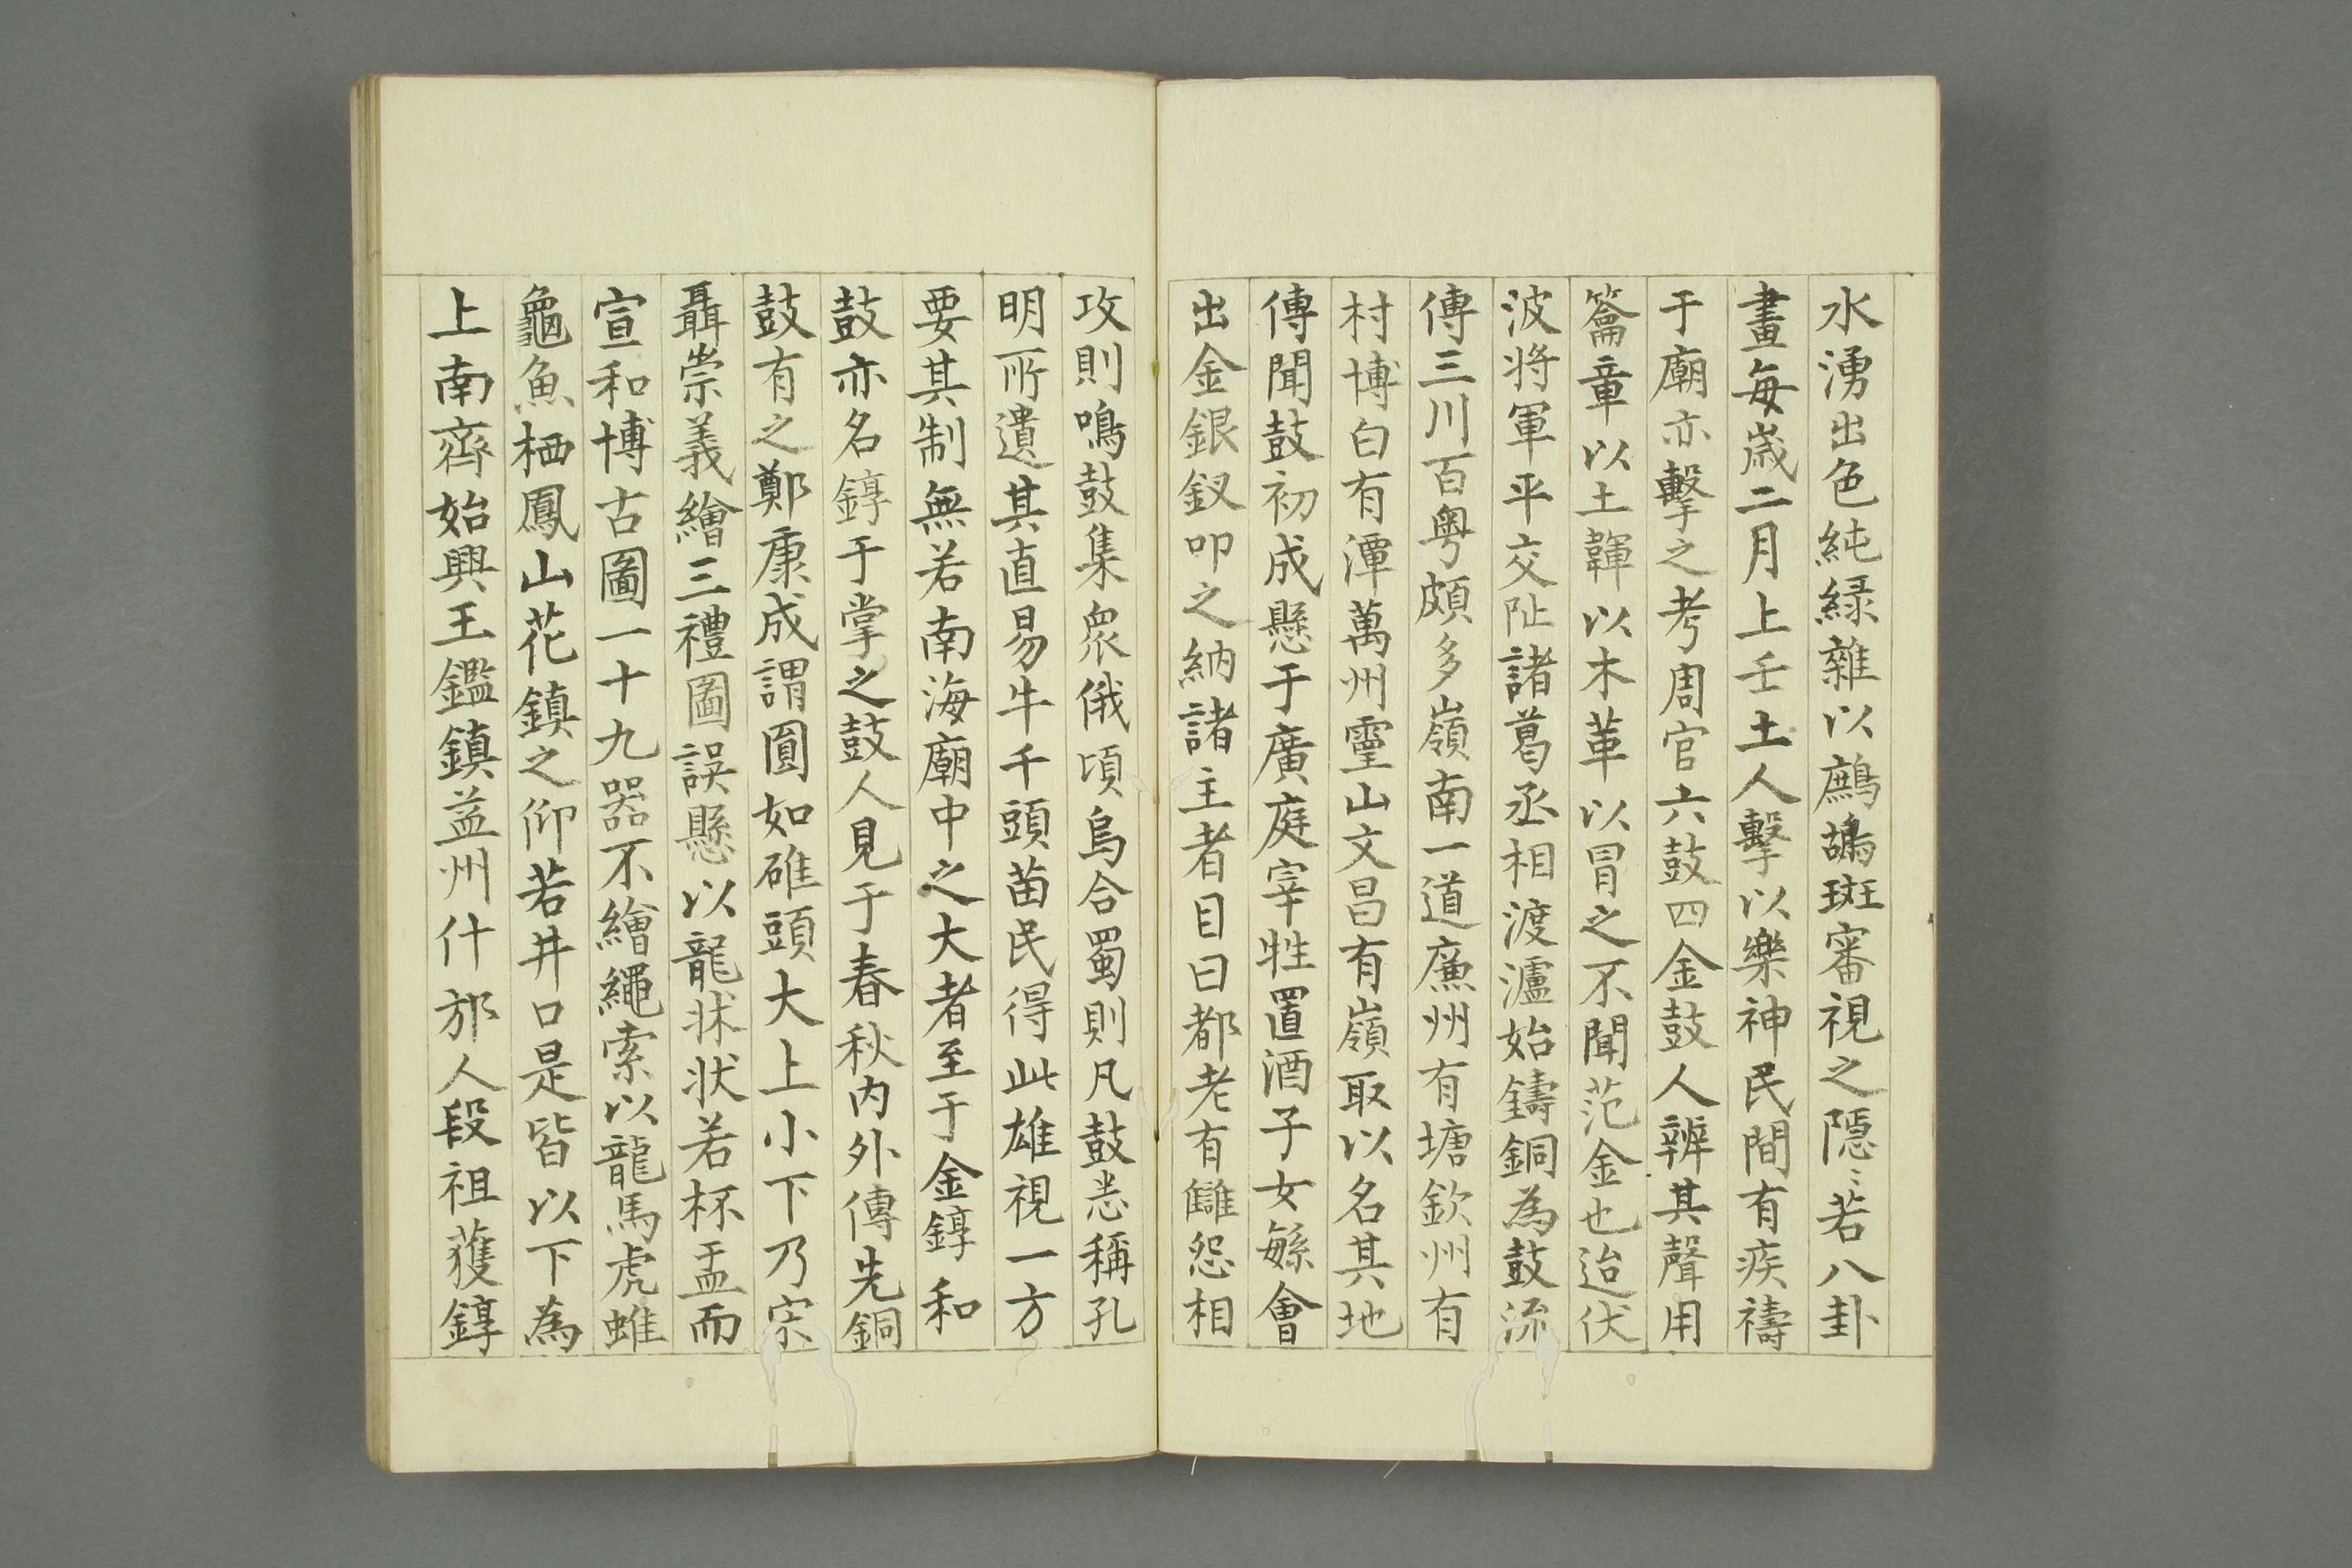 水湧出色純緑雜以鷓鴣斑審視之隱〻若八卦
畫每歲二月上壬土人擊以樂神民間有疾禱
于廟亦擊之考周官六鼓四金鼓人辨其聲用
籥章以土鞸以木革以冒之不聞范金也迨伏
波將軍平交阯諸葛丞相渡瀘始鑄銅為鼓流
傳三川百粤頗多嶺南一道廉州有塘欽州有
村博白有潭萬州靈山文昌有嶺取以名其地
傳聞鼓初成懸于廣庭宰牲置酒子女緐會
出金銀釵叩之納諸主者目曰都老有讎怨相
攻則鳴鼓集衆俄頃烏合蜀則凡鼓悉稱孔
明所遺其直易牛千頭苗民得此雄視一方
要其制無若南海廟中之大者至于金錞和
鼓亦名錞于掌之鼓人見于春秋内外傳先銅
鼓有之鄭康成謂圓如碓頭大上小下乃宋
聶崇義繪三禮圖誤懸以龍牀状若杯盂而
宣和博古圖一十九器不繪繩索以龍馬虎蜼
龜魚栖鳳山花鎮之仰若井口是皆以下為
上南齊始興王鑑鎮益州什邡人段祖獲錞